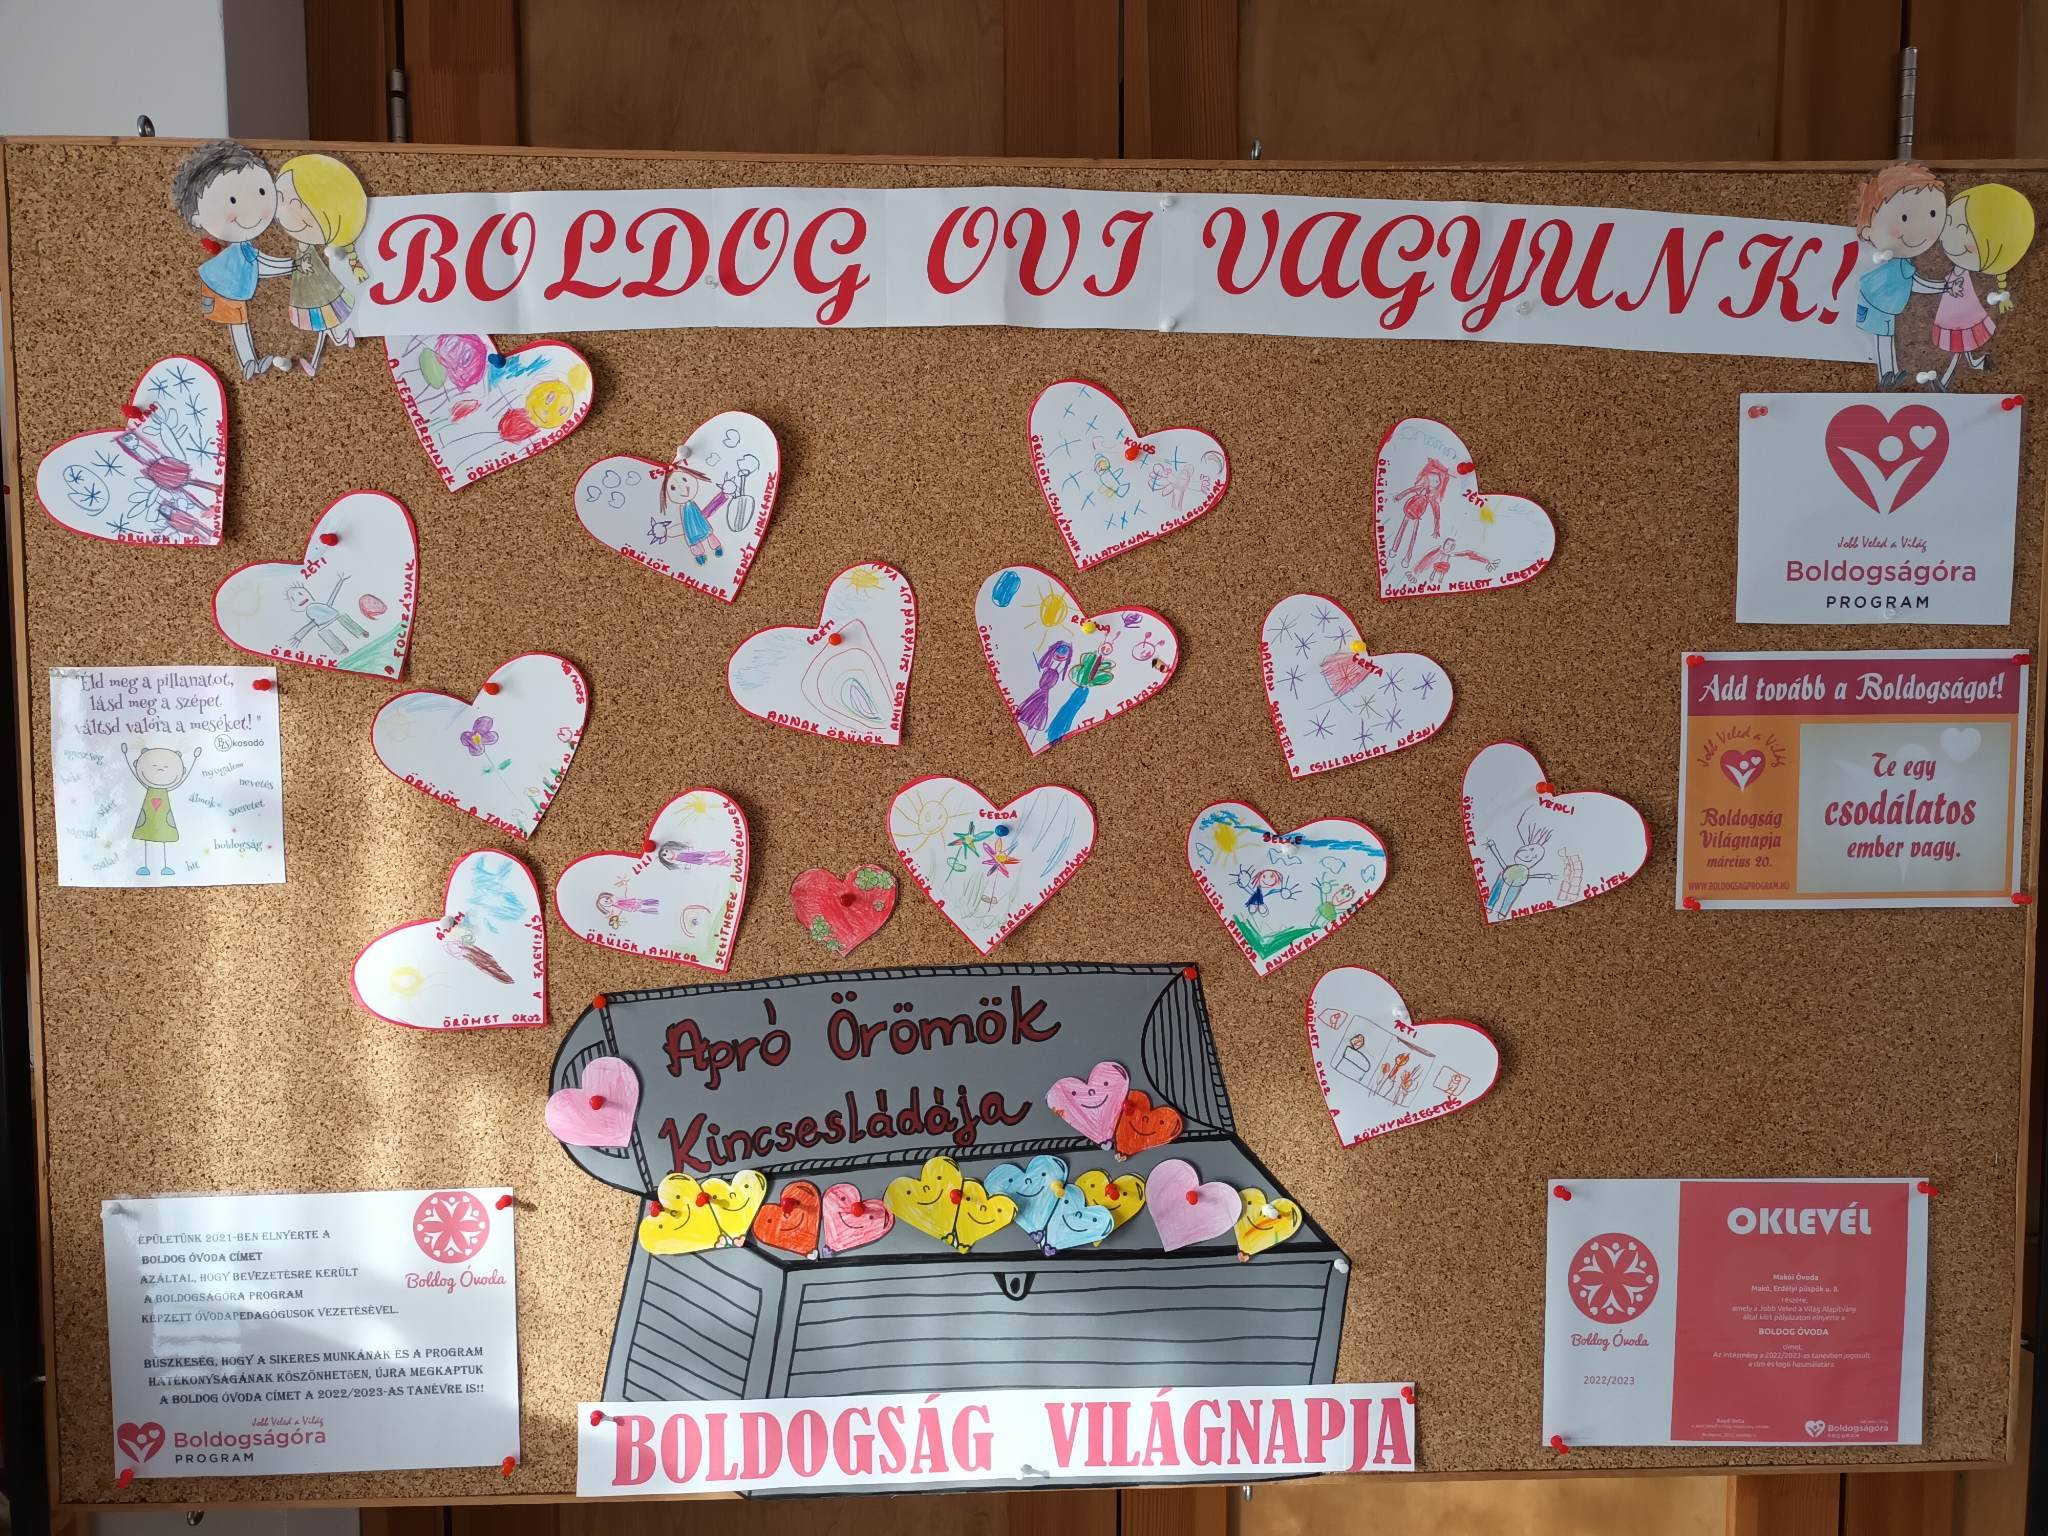 BOLDOG OVI VAGYUNK!
ÖRÜLÖK, HA
ANYÁVAL SÉTÁLOK
A TESTVÉREMNEK
ÖRÜLÖK LEGJOBBAN
ÖRÜLÖK, AMIKOR
ZENÉT HALLGATOK
KOLOS
ÖRÜLÖK: CSALÁDNAK,
ÁLLATOKNAK, CSILLAGOKNAK
ZÉTI
ÖRÜLÖK, AMIKOR
ÓVÓNÉNI MELLETT LEHETEK
ZÉTI
ÖRÜLÖK
A FOCIZÁSNAK
GRÉTI
ANNAK ÖRÜLÖK
AMIKOR SZIVÁRVÁNY
GRÉTA
NAGYON SZERETEM
A CSILLAGOKAT NÉZNI
ÖRÜLÖK A
LILI
ÖRÜLÖK, AMIKOR
SEGÍTHETEK ÓVÓNÉNINEK
GERDA
ÖRÜLÖK
A
VIRÁGOK ILLATÁNAK
ÖRÜLÖK, AMIKOR
ANYÁVAL LEHETEK
VENCI
ÖRÖMET ÉRZEK
AMIKOR ÉPÍTEK
ÁZIM
ÖRÖMET OKOZ
ÖRÖMET OKOZ A
KÖNYVNÉZEGETÉS
Jobb Veled a Világ
Boldogságóra
PROGRAM
"Éld meg a pillanatot,
lásd meg a szépet
váltsd valóra a meséket!"
kosodó
egészség
nyugalom
nevetés
béke
siker
álmok
szeretet
vágyak
boldogság
család
hit
Add tovább a Boldogságot!
Jobb Veled a Világ
Boldogság
Világnapja
március 20.
WWW.BOLDOGSAGPROGRAM.HU
Te egy
csodálatos
ember vagy.
Apró Örömök
Kincsesládája
ÉPÜLETÜNK 2021-BEN ELNYERTE A
BOLDOG ÓVODA CÍMET
AZÁLTAL, HOGY BEVEZETÉSRE KERÜLT
A BOLDOGSÁGÓRA PROGRAM
KÉPZETT ÓVODAPEDAGÓGUSOK VEZETÉSÉVEL.
BÜSZKESÉG, HOGY A SIKERES MUNKÁNAK ÉS A PROGRAM
HATÉKONYSÁGÁNAK KÖSZÖNHETŐEN, ÚJRA MEGKAPTUK
A BOLDOG ÓVODA CÍMET A 2022/2023-AS TANÉVRE IS!!
Boldog Óvoda
Jobb Veled a Világ
Boldogságóra
PROGRAM
BOLDOGSÁG VILÁGNAPJA
Boldog Óvoda
2022/2023
OKLEVÉL
Makói Óvoda
Makó, Erdélyi püspök u. 8.
részére,
amely a Jobb Veled a Világ Alapítvány
által kiírt pályázaton elnyerte a
BOLDOG ÓVODA
címet.
Az intézmény a 2022/2023-as tanévben jogosult
a cím és logó használatára.
Boldogságóra
PROGRAM